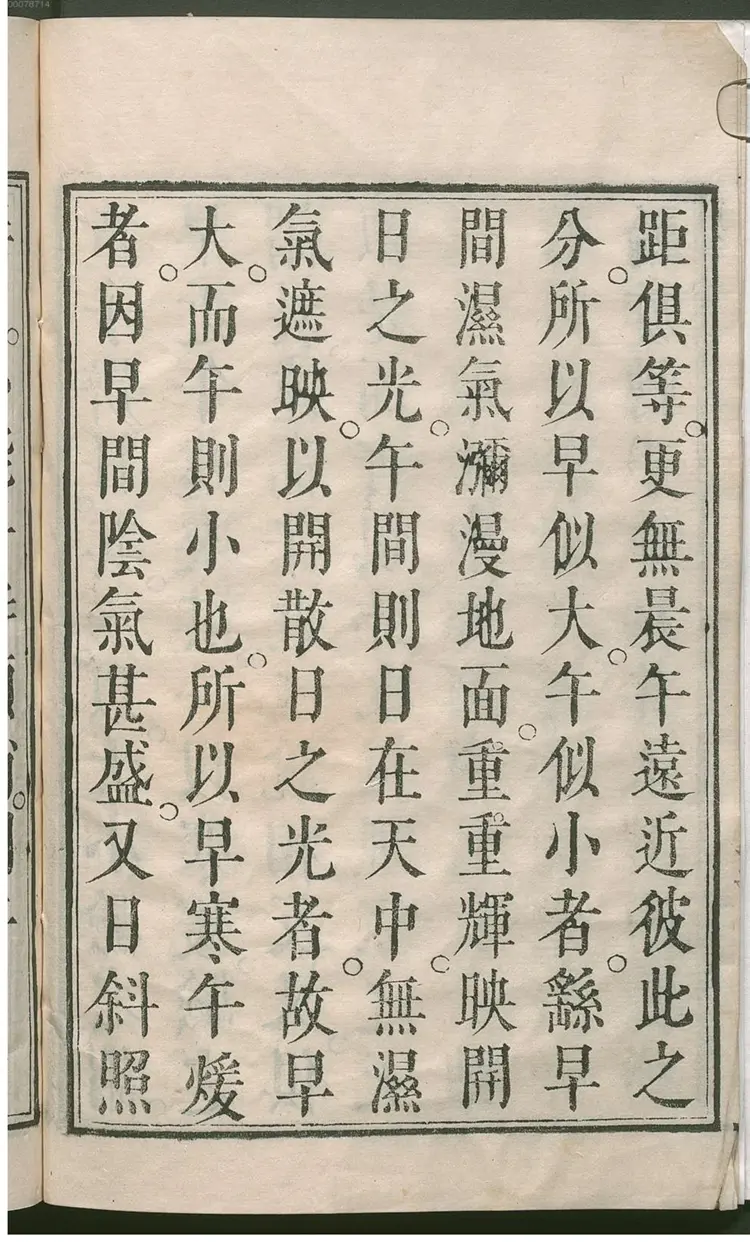 距俱等。更無晨午遠近彼此之
分。所以早似大。午似小者。繇早
間濕氣瀰漫地面。重重輝映開
日之光。午間則日在天中。無濕
氣遮映。以開散日之光者。故早
大。而午則小也。所以早寒、午煖
者。因早間陰氣甚盛。又日斜照
00076714